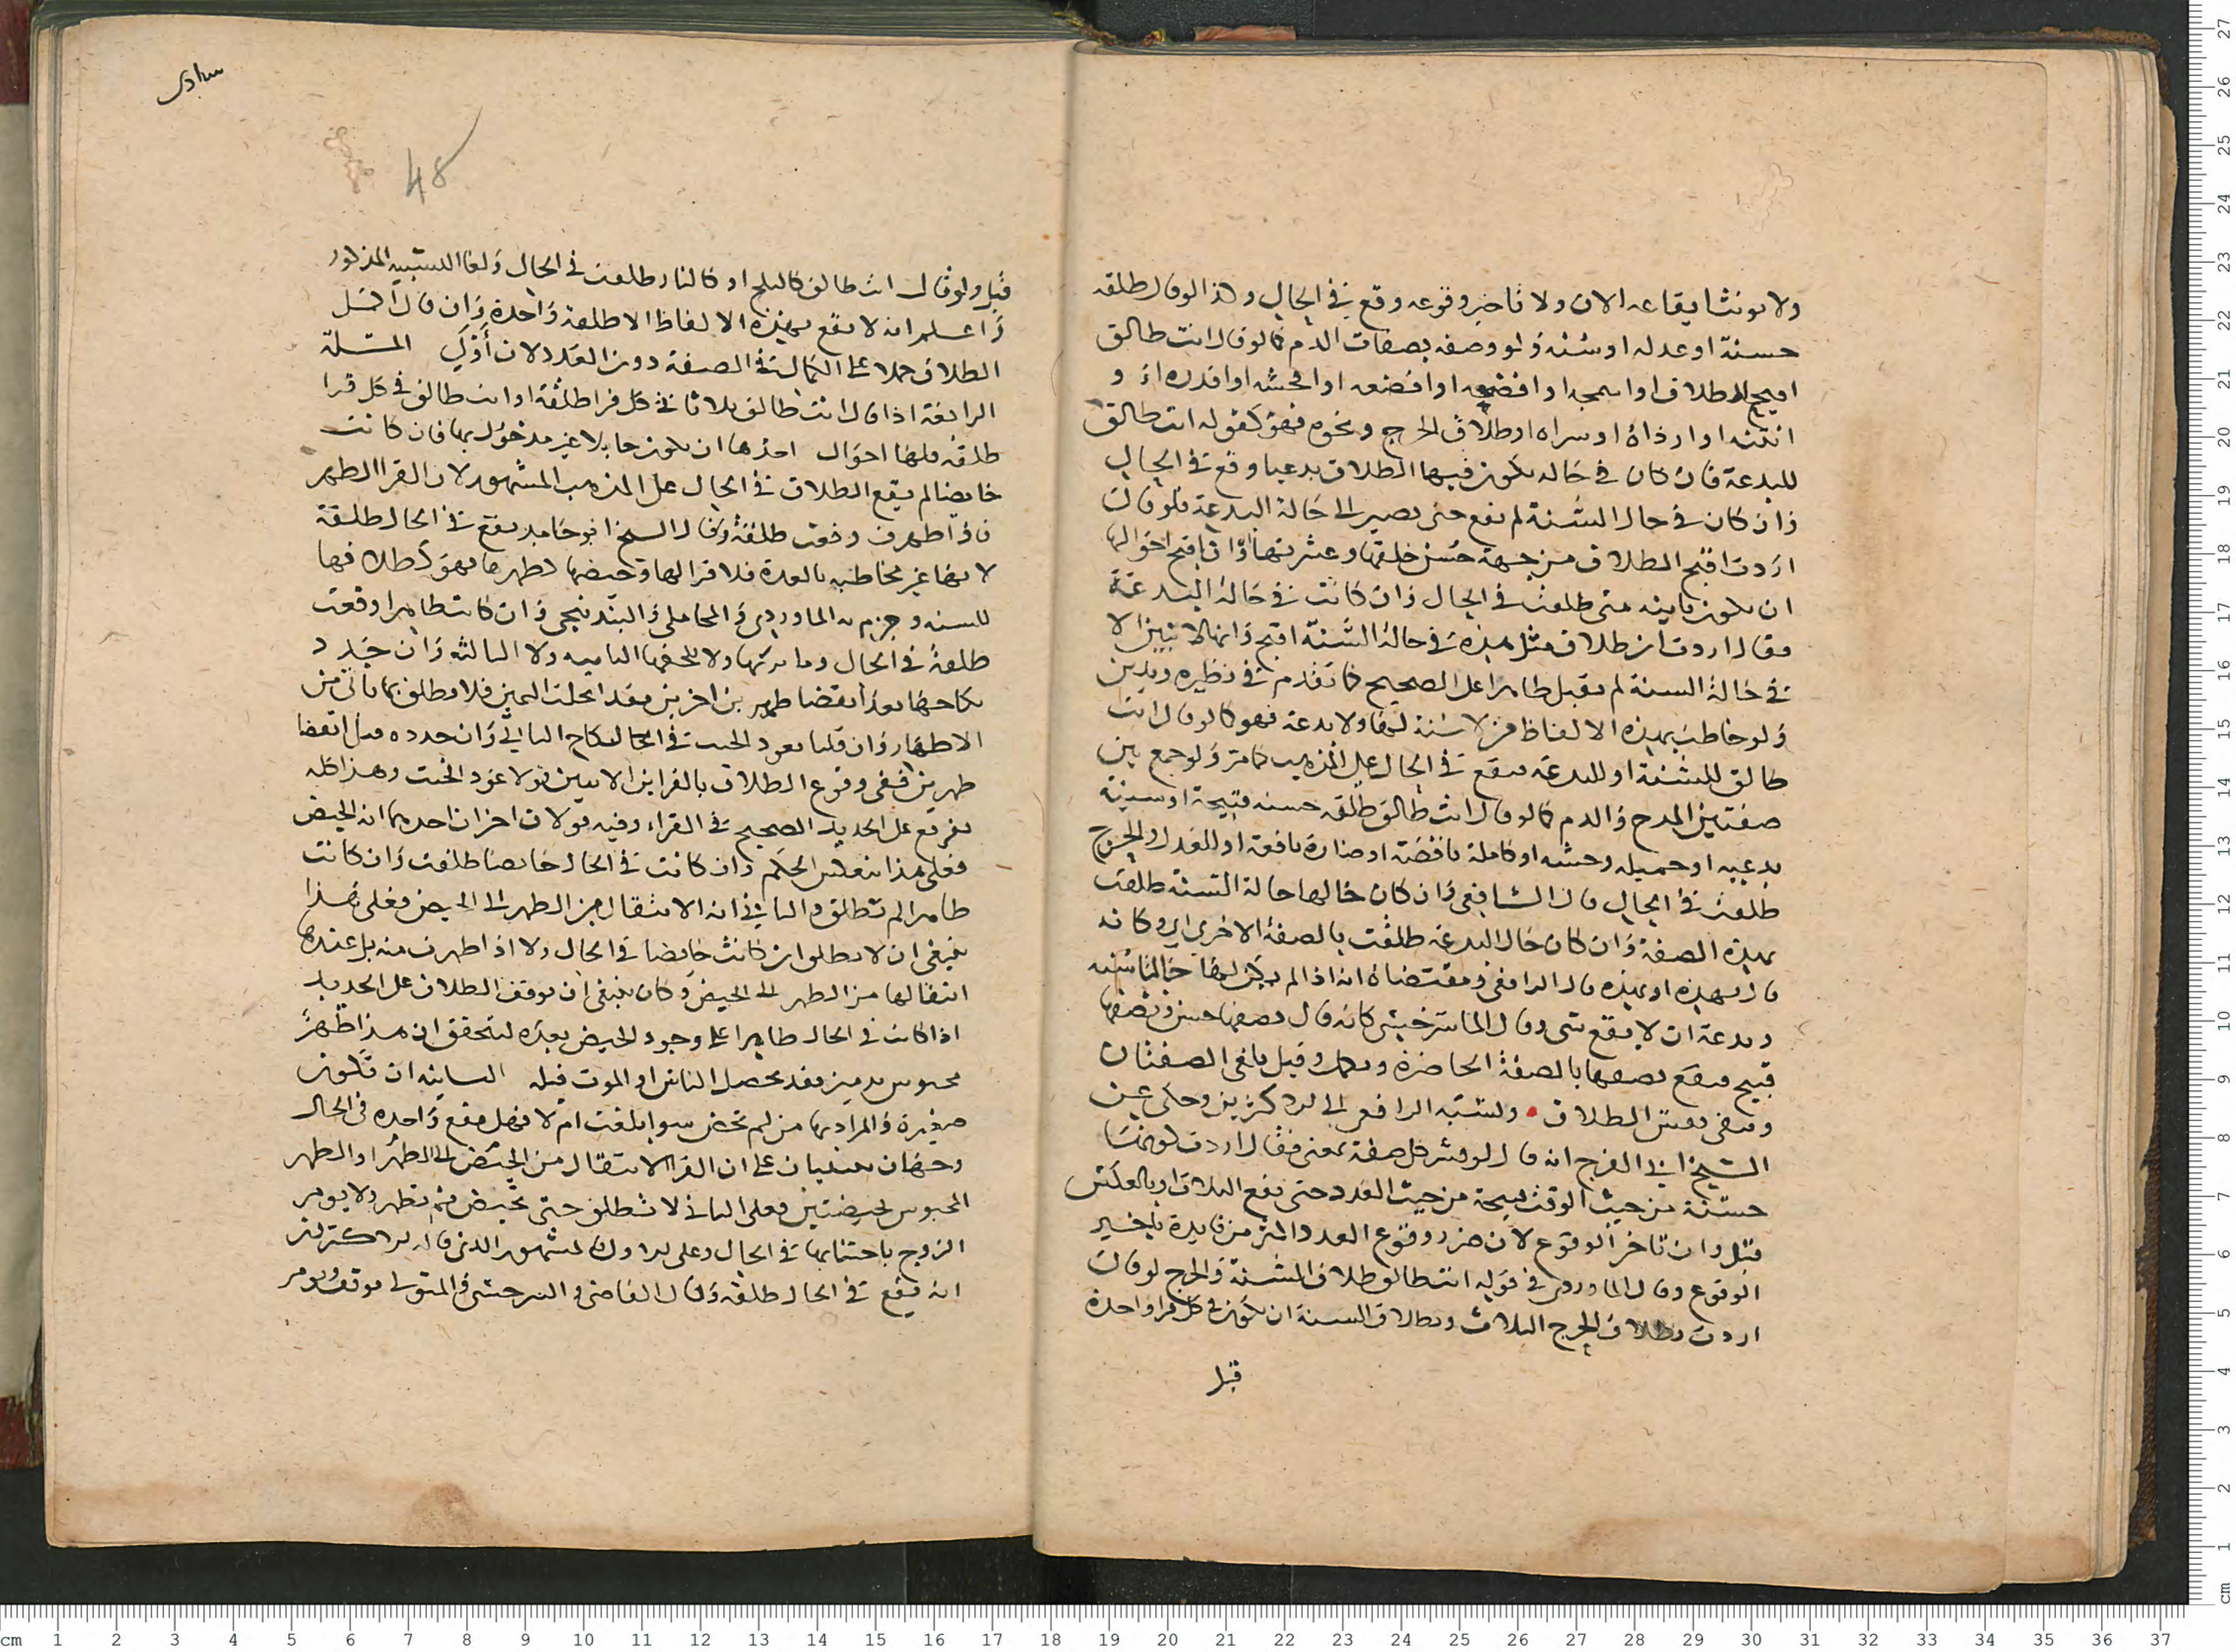 ولا يونثا يقاعه الان ولا تاخير وقوعه وقع في الحال وكذا لو قال طلقه
حسنة او عدله او سنه ولو وصفه بصفات الذم كما لو قال انت طالق
اقبح الطلاق او اسمجه او افضحه او افضعه او افحشه او اقذره او
انتنه او ارذاه او سراه او طلاق الحرج ونحوه فهو كقوله انت طالق
للبدعة فان كان في حاله يكون فيها الطلاق بدعيا وقع في الحال
وان كان في حال السنة لم يقع حتى يصير الى حالة البدعة فلو قال
اردت اقبح الطلاق من جهة حسن خلقها وعشرتها وان اقبح احوالها
ان يكون باينه مني طلقت في الحال وان كانت في حالة البدعة
فقال اردت ان طلاق مثل هذه في حالة السنة اقبح وانها لا تبين الا
في حالة السنة لم يقبل ظاهرا على الصحيح كما تقدم في نظيره ويدين
ولو خاطب بهذه الالفاظ من لا سنة لها ولا بدعة فهو كما لو قال انت
طالق للسنة او للبدعة فيقع في الحال على المذهب كما مر ولو جمع بين
صفتين المدح والذم كما لو قال انت طالق طلقه حسنه قبيحة او سنية
بدعيه او جميله وحشه او كاملة ناقصة او ضارة نافعة او للعدل والجرح
طلقت في الحال قال الشافعي وان كان حالها حالة السنة طلقت
بهذه الصفة وان كان حال البدعة طلقت بالصفة الاخرى اي وكانه
قال بهذه او بهذه قال الرافعي ومقتضاه انه اذا لم يكن لها حالتا سنه
وبدعة ان لا يقع شي وقال السرخسي كانه قال بعضها حسن وبعضها
قبيح فيقع بعضها بالصفة الحاضرة ويكمل وقيل يلغى الصفتان
ويبقى نفس الطلاق ونسبه الرافعي الى الاكثرين وحكى عن
الشيخ ابي الفرج انه قال لو فسر كل صفة بمعنى فقال اردت كونها
حسنة من حيث الوقت قبيحة من حيث العدد حتى يقع الثلاث او بالعكس
قبل وان تاخر الوقوع لان ضرر وقوع العدد اكثر من فايدة تاخير
الوقوع وقال الماوردي في قوله انت طالق طلاق السنة والحرج لو قال
اردت بطلاق الحرج الثلاث وبطلاق السنة ان يكون في كل قرا واحدة
قبل
48
قبل ولو قال انت طالق كالثلج او كالنار طلقت في الحال ولغا التشبيه المذكور
واعلم انه لا يقع بهذه الالفاظ الا طلقة واحدة وان قال اكمل
الطلاق حملا على الكمال في الصفة دون العدد لان اولى المسلة
الرابعة اذا قال انت طالق ثلاثا في كل قرا طلقة او انت طالق في كل قرا
طلقه فلها احوال احدها ان يكون حايلا غير مدخول بها فان كانت
حايضا لم يقع الطلاق في الحال على المذهب المشهور لان القرا الطهر
فاذا طهرت وقعت طلقة وقال الشيخ ابو حامد يقع في الحال طلقة
لانها غير مخاطبه بالعدة فلا قرا لها وحيضها كطهرها فهو كطلاقها
للسنه وجزم به الماوردي والمحاملي والبندنيجي وان كانت طاهرا وقعت
طلقة في الحال وما تركتها ولا تلحقها الثانيه ولا الثالثه وان جدد
نكاحها بعد انقضا طهرين اخرين فقد انحلت اليمين فلا تطلق بما ياتي من
الاطهار وان قلنا بعود الحنث في الحال النكاح الثاني وان جدده قبل انقضا
طهرين ففي وقوع الطلاق بالقراين الاتيين قولا عود الحنث وهذا كله
تفريع على الجديد الصحيح في القراء وفيه قولان اخران احدهما انه الحيض
فعلى هذا ينعكس الحكم وان كانت في الحال حايضا طلقت وان كانت
طاهرا لم تطلق والثاني انه الانتقال من الطهر الى الحيض فعلى هذا
ينبغي ان لا تطلق ان كانت حايضا في الحال ولا اذا طهرت منه بل عند
انتقالها من الطهر الى الحيض وكان ينبغي ان يوقف الطلاق على الجديد
اذا كانت في الحال طاهرا على وجود الحيض بعده لتحقق ان هذا طهر
محبوس بدمين فقد يحصل الياس او الموت قبله الثانيه ان تكون
صغيرة والمراد بها من لم تحض سوا بلغت ام لا فهل يقع واحده في الحال
وجهان مبنيان على ان القرا الانتقال من الحيض الى الطهر او الطهر
المحبوس بحيضتين فعلى الثاني لا تطلق حتى تحيض ثم تطهر ولا يومر
الزوج باجتنابها في الحال وعلى الاول المشهور الذي قاله الاكثرون
انه يقع في الحال طلقة وقال القاضي والسرخسي والمتولي موقف ويومر